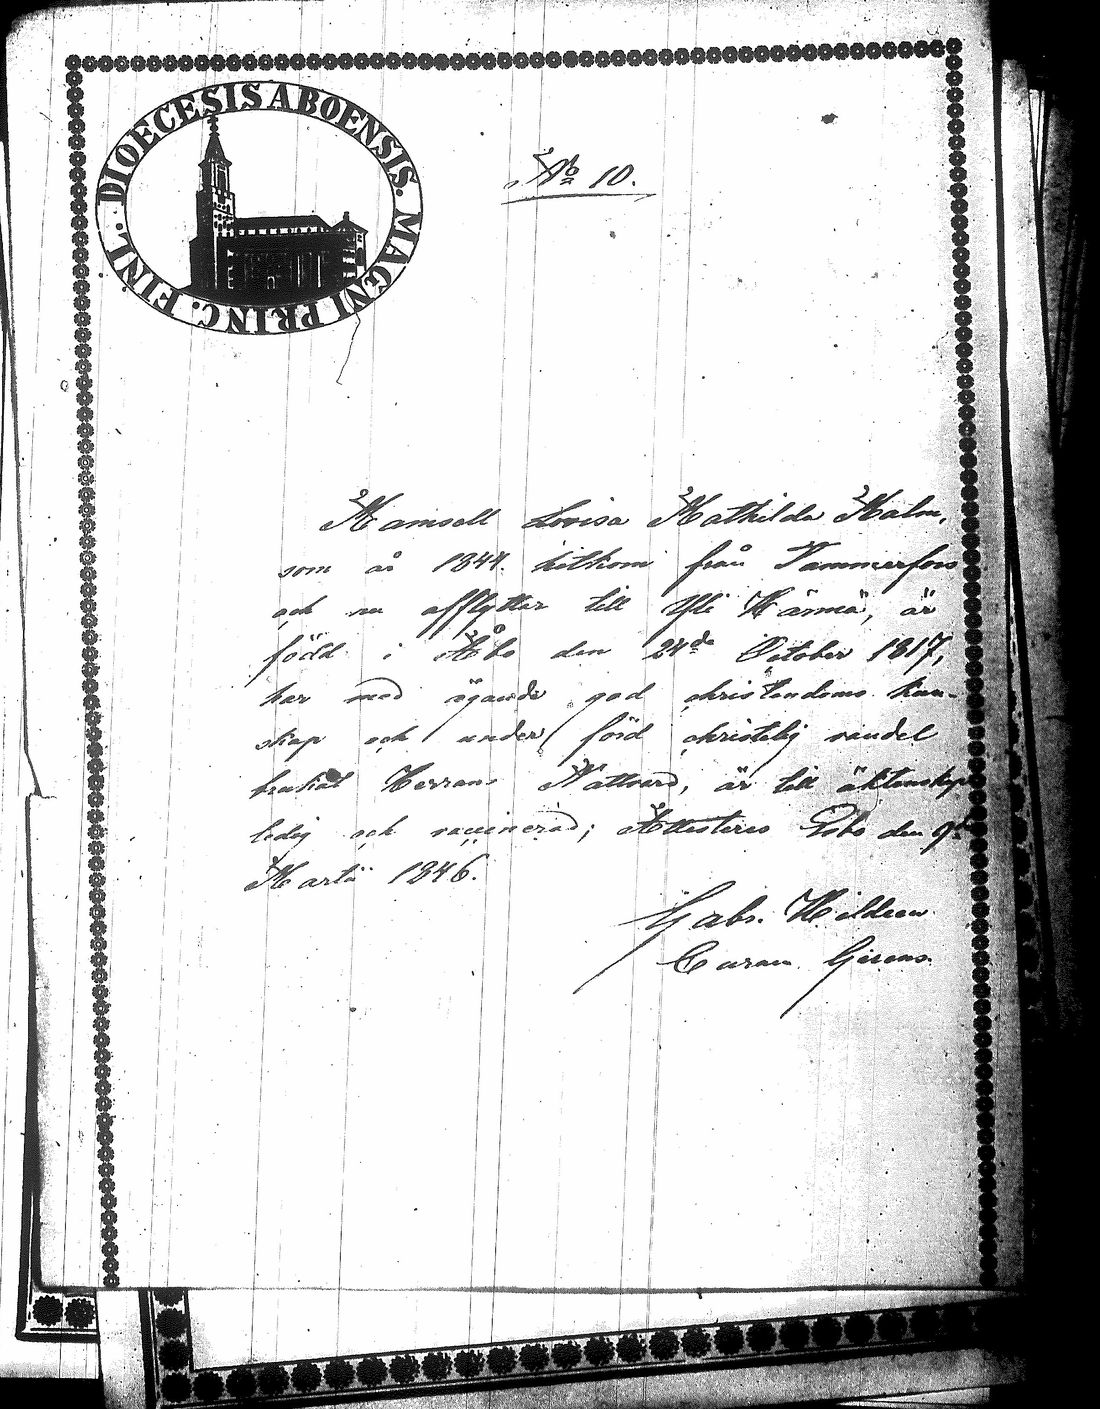 DIOECESIS ABOENSIS. MAGNI PRINC. FINL.
No 10.
Mamsell Lovisa Mathilda Malm,
som år 1844. hitkom från Tammerfors
och nu afflyttar till Yli Härmä, är
född i Åbo den 24de October 1817,
har med ägande god christendoms kun-
skap och under förd christelig vandel
brukat Herrans Nattvard, är till äktenskap
ledig och vaccinerad; Attesteras Esbo den 9de
Martii 1846.
Gabr. Hildeen
Curam Gerens.